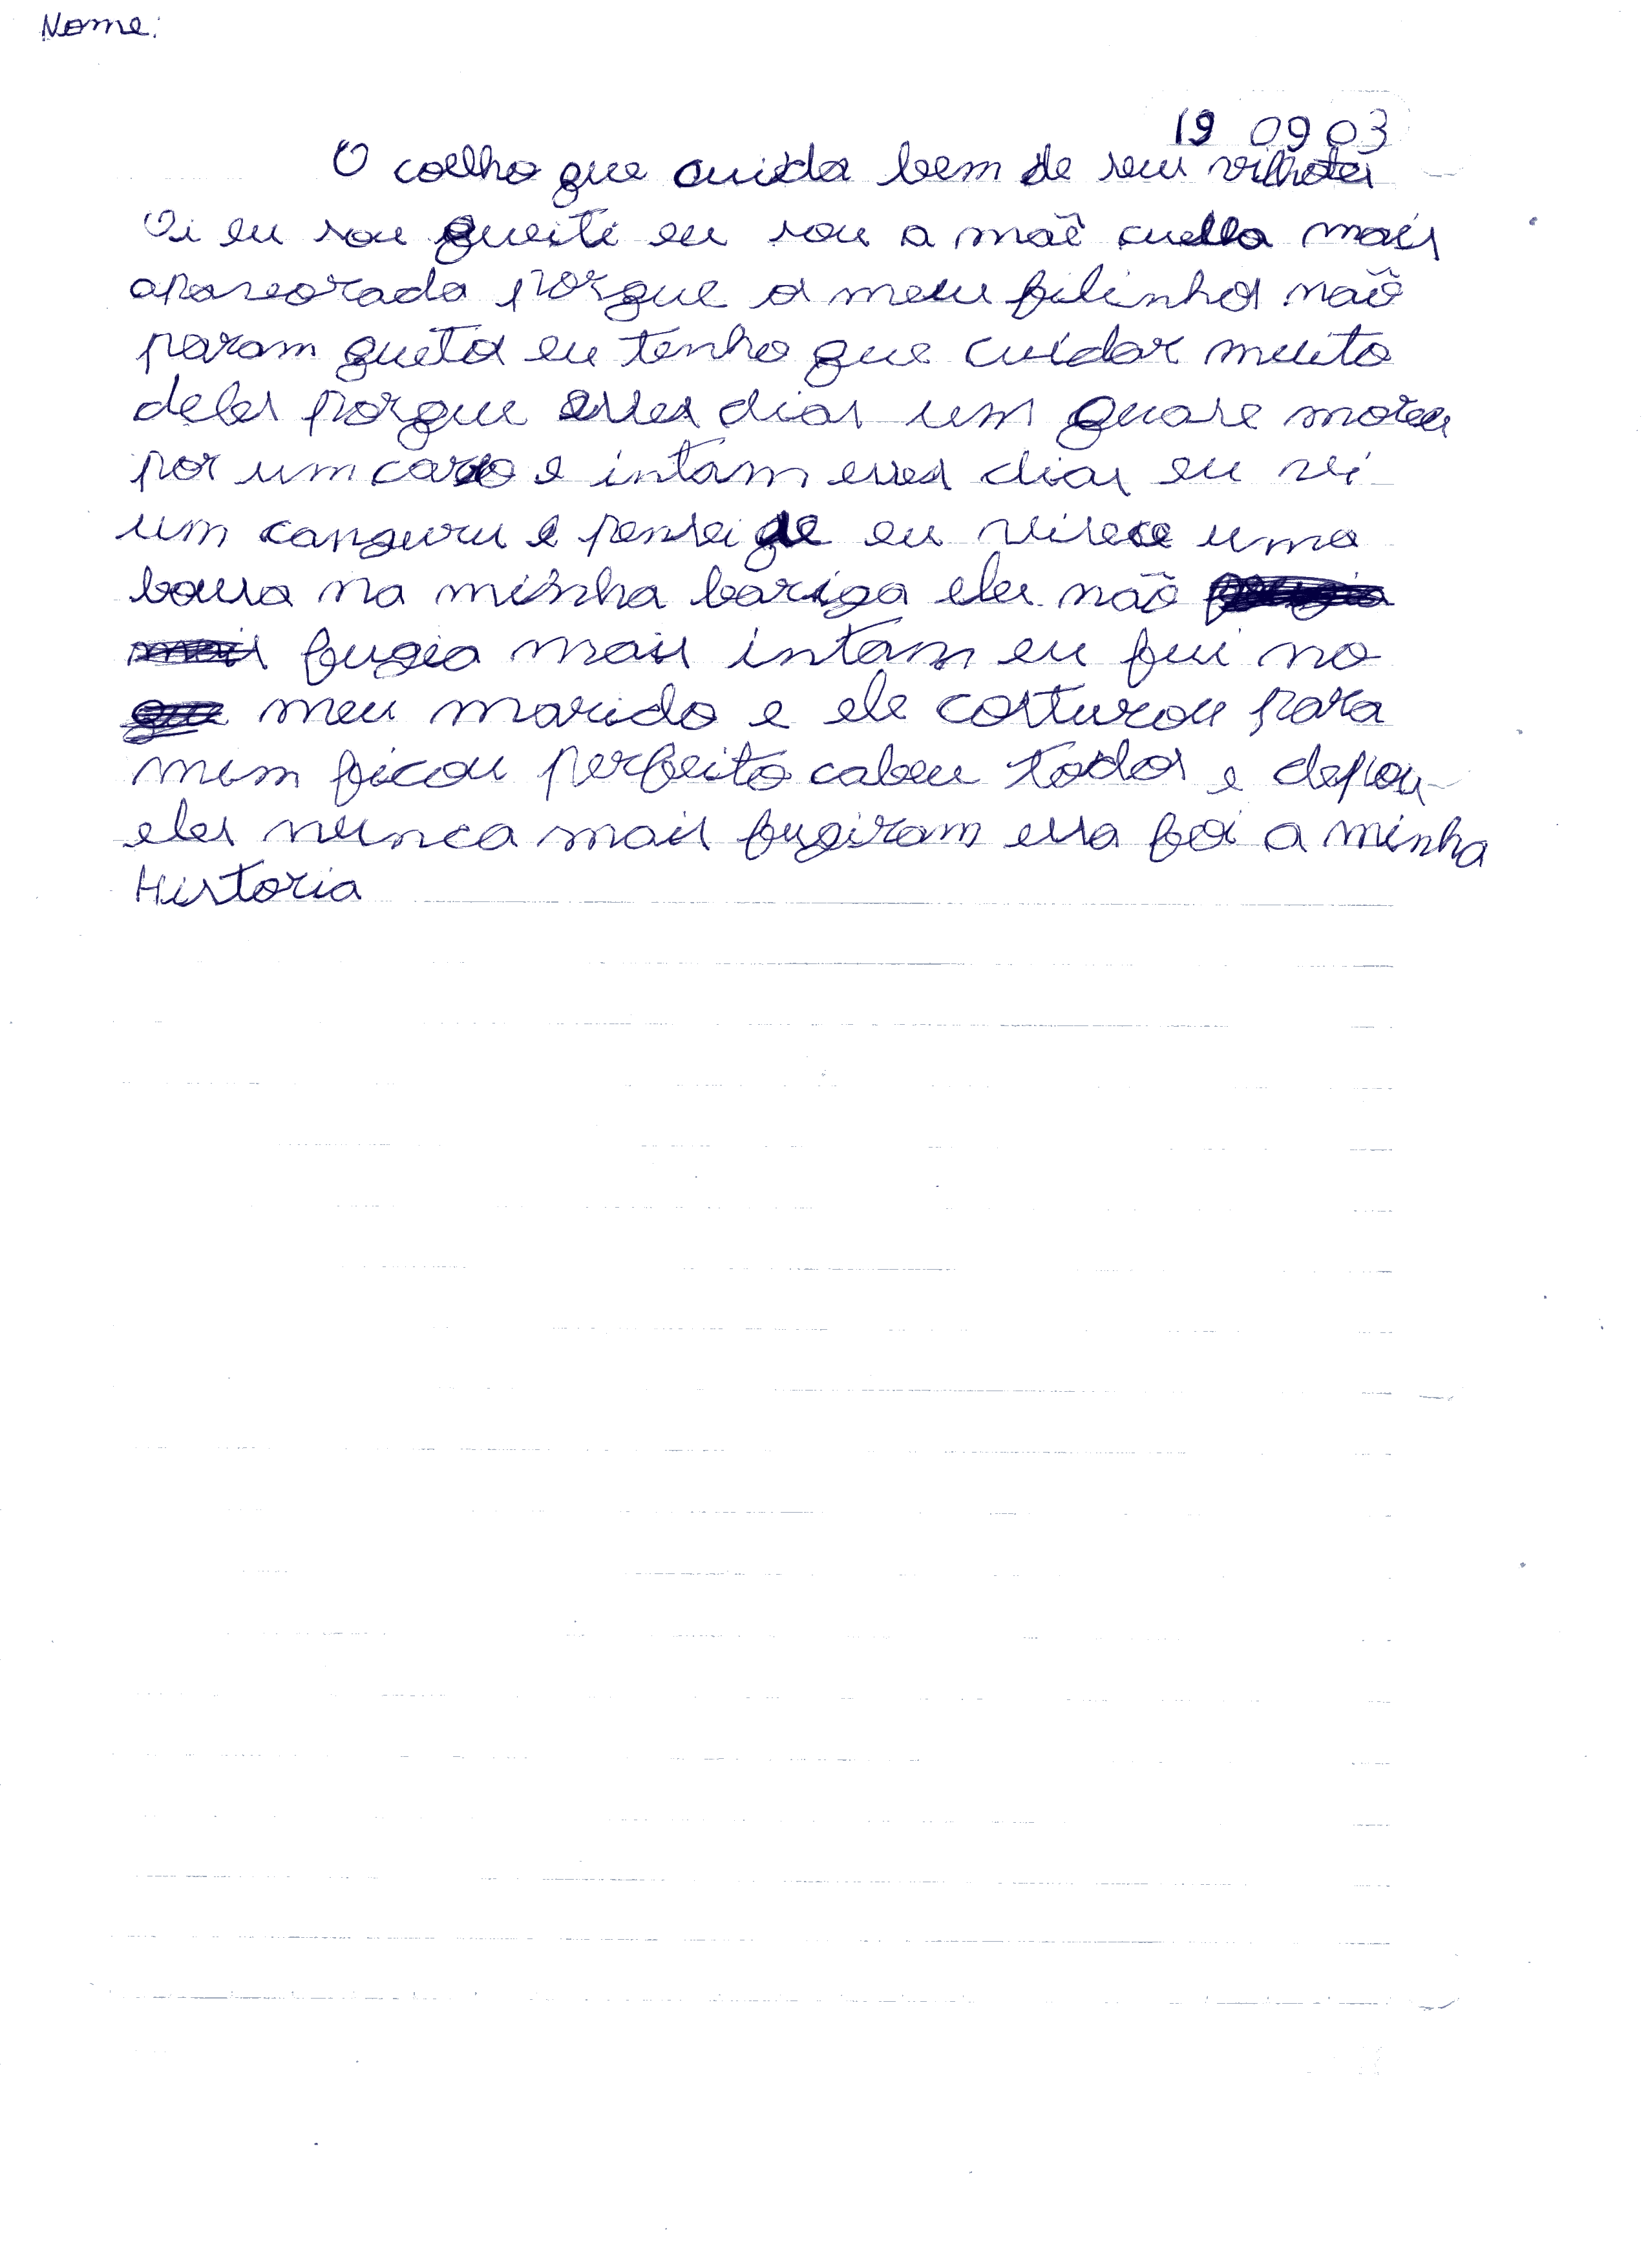 Nome:
19 09 03
O coelho que cuida bem de seus vilhotes
Oi eu sou queite eu sou a mãe cuella mais
apavorada porque os meus filinhos não
param quetos eu tenho que cuidar muito
deles porque esses dias um quase moreu
por um caro e intam esses dias eu vi
um canguru e pensei se eu visece uma
bousa na minha bariga eles não
fugia mais intam eu fui no
meu marido e ele costurou para
mim ficou perfeito cabeu todos e depous
eles nunca mais fugiram essa foi a minha
Historia